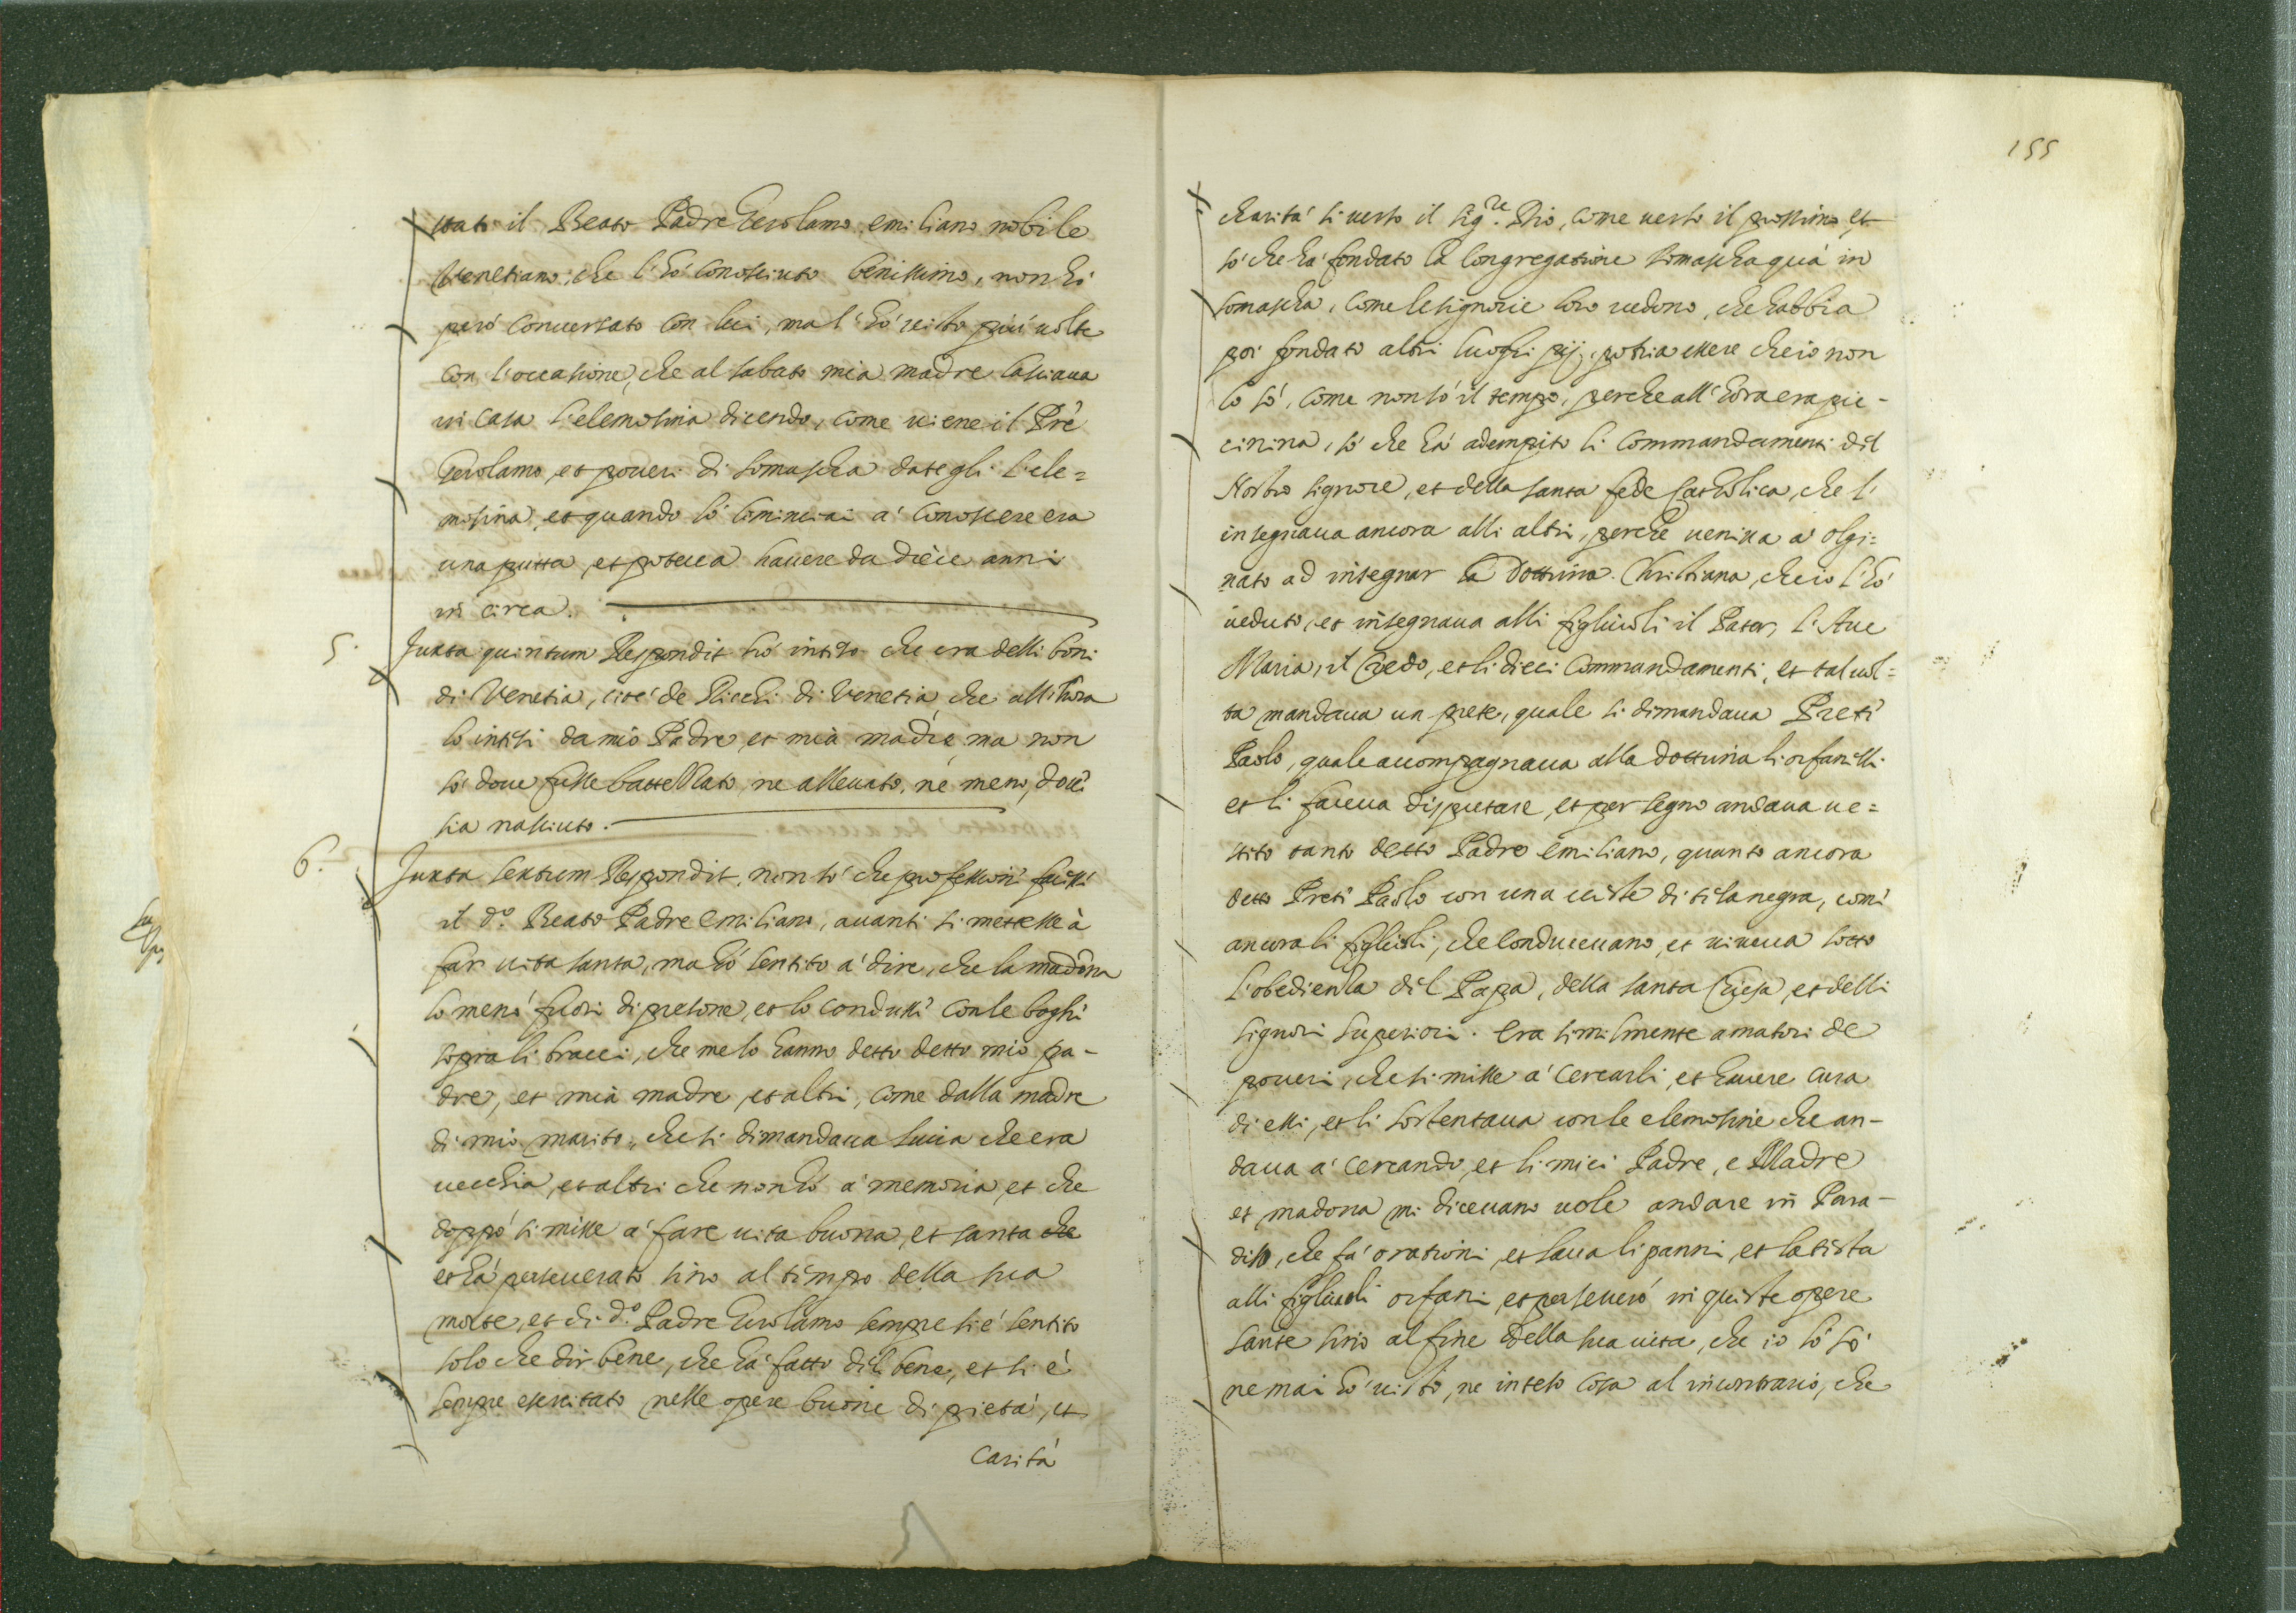 stato il Beato Padre Gerolamo emiliano nobile
Venetiano, che l'hò conosciuto benissimo, non hò
però conversato con lui, ma l'hò visto più volte
con l'occasione, che al sabato mia madre lasciava
in casa l'elemosina dicendo, come viene il Prê
Gerolamo, et poveri di Somascha dategli l'ele=
mosina, et quando lò cominciai a' conoscere era
una putta, et poteva havere da dièce anni
in circa.
5. Juxta quintum Respondit hò inteso che era delli boni
di Venetia, cioè de Ricchi di Venetia, che all'hora
lo intesi da mio Padre, et mia madre, ma non
sò dove fusse battezzato, ne allevato, nè meno, dove
sia nasciuto.
6. Juxta sextum Respondit, non sò che professione facesse
il d.º Beato Padre Emiliano, avanti si mettesse à
far vita santa, ma hò sentito a' dire, che la madôna
lo menò fuori di presone, et lo condusse con le boghe
sopra li bracci, che me lo hanno detto detto mio pa-
dre, et mia madre, et altri, come dalla madre
di mio marito, che si dimandava Lucia che era
vecchia, et altri che non hò a' memoria, et che
doppò si misse a' fare vita buona, et santa che
et hà perseverato sino al tempo della sua
morte, et di d.º Padre Gerolamo sempre si è sentito
solo che dir bene, che hà fatto dil bene, et si è
sempre esercitato nelle opere buone di pietà, et
carità
155
charità si verso il Sig.re Dio, come verso il prossimo, et
sò che hà fondato la Congregatione Somascha quà in
Somascha, come le signorie loro vedono, che habbia
poi fondato altri luoghi pij, potria essere che io non
lo sò, come non sò il tempo, perche all'hora era pic-
cinina, sò che hà adempito li commandamenti dil
Nostro signore, et della santa fede Catholica, che l'
insegnava ancora alli altri, perche veniva a' Olgi=
nato ad insegnar la Dottrina Christiana, che io l'hò
veduto, et insegnava alli figliuoli il Pater, l'Ave
Maria, il Credo, et li dieci Commandamenti, et tal vol=
ta mandava un prete, quale si dimandava Preti
Paolo, quale accompagnava alla dottrina li orfanelli
et li faceva disputare, et per segno andava ve=
stito tanto detto Padre emiliano, quanto ancora
detto Preti Paolo con una veste di tela negra, come
ancora li figlioli, che conducevano, et viveva sotto
l'obedienza dil Papa, della santa Chiesa, et delli
signori Superiori. Era similmente amatore de
poveri, che si misse a' cercarli, et havere cura
di essi, et li sostentava con le elemosine che an-
dava a' cercando, et li miei Padre, e Madre
et madona mi dicevano vole andare in Para-
diso, che fà orationi, et lava li panni, et la testa
alli figliuoli orfani, et perseverò in queste opere
sante sino al fine della sua vita, che io lo sò
ne mai hò visto, ne inteso cosa al incontrario, che